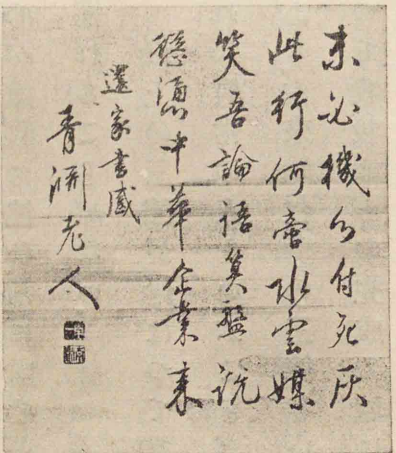 未必機心付死灰
此行何啻水雲媒
笑吾論語算盤説
慫慂中華企業来
還家書感
青淵老人